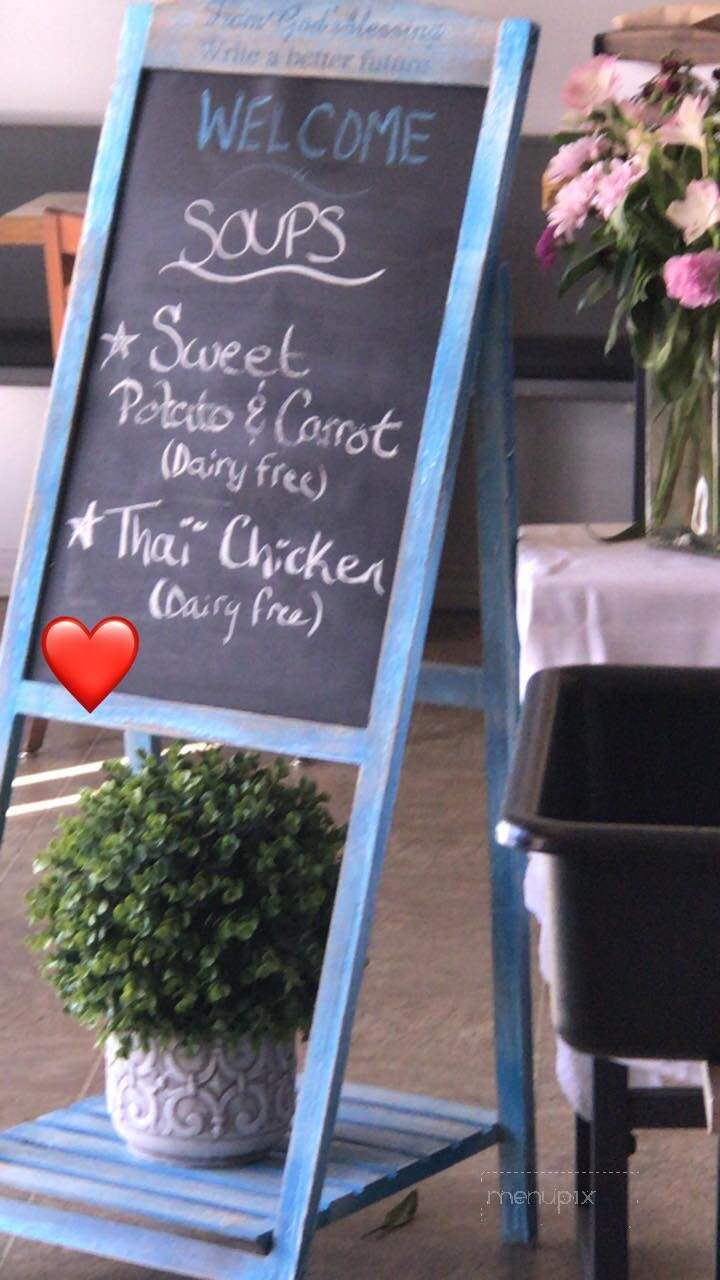 From God's blessing
Write a better future
WELCOME
SOUPS
☆ Sweet
Potato & Carrot
(Dairy free)
☆ Thaï Chicken
(Dairy free)
menupix